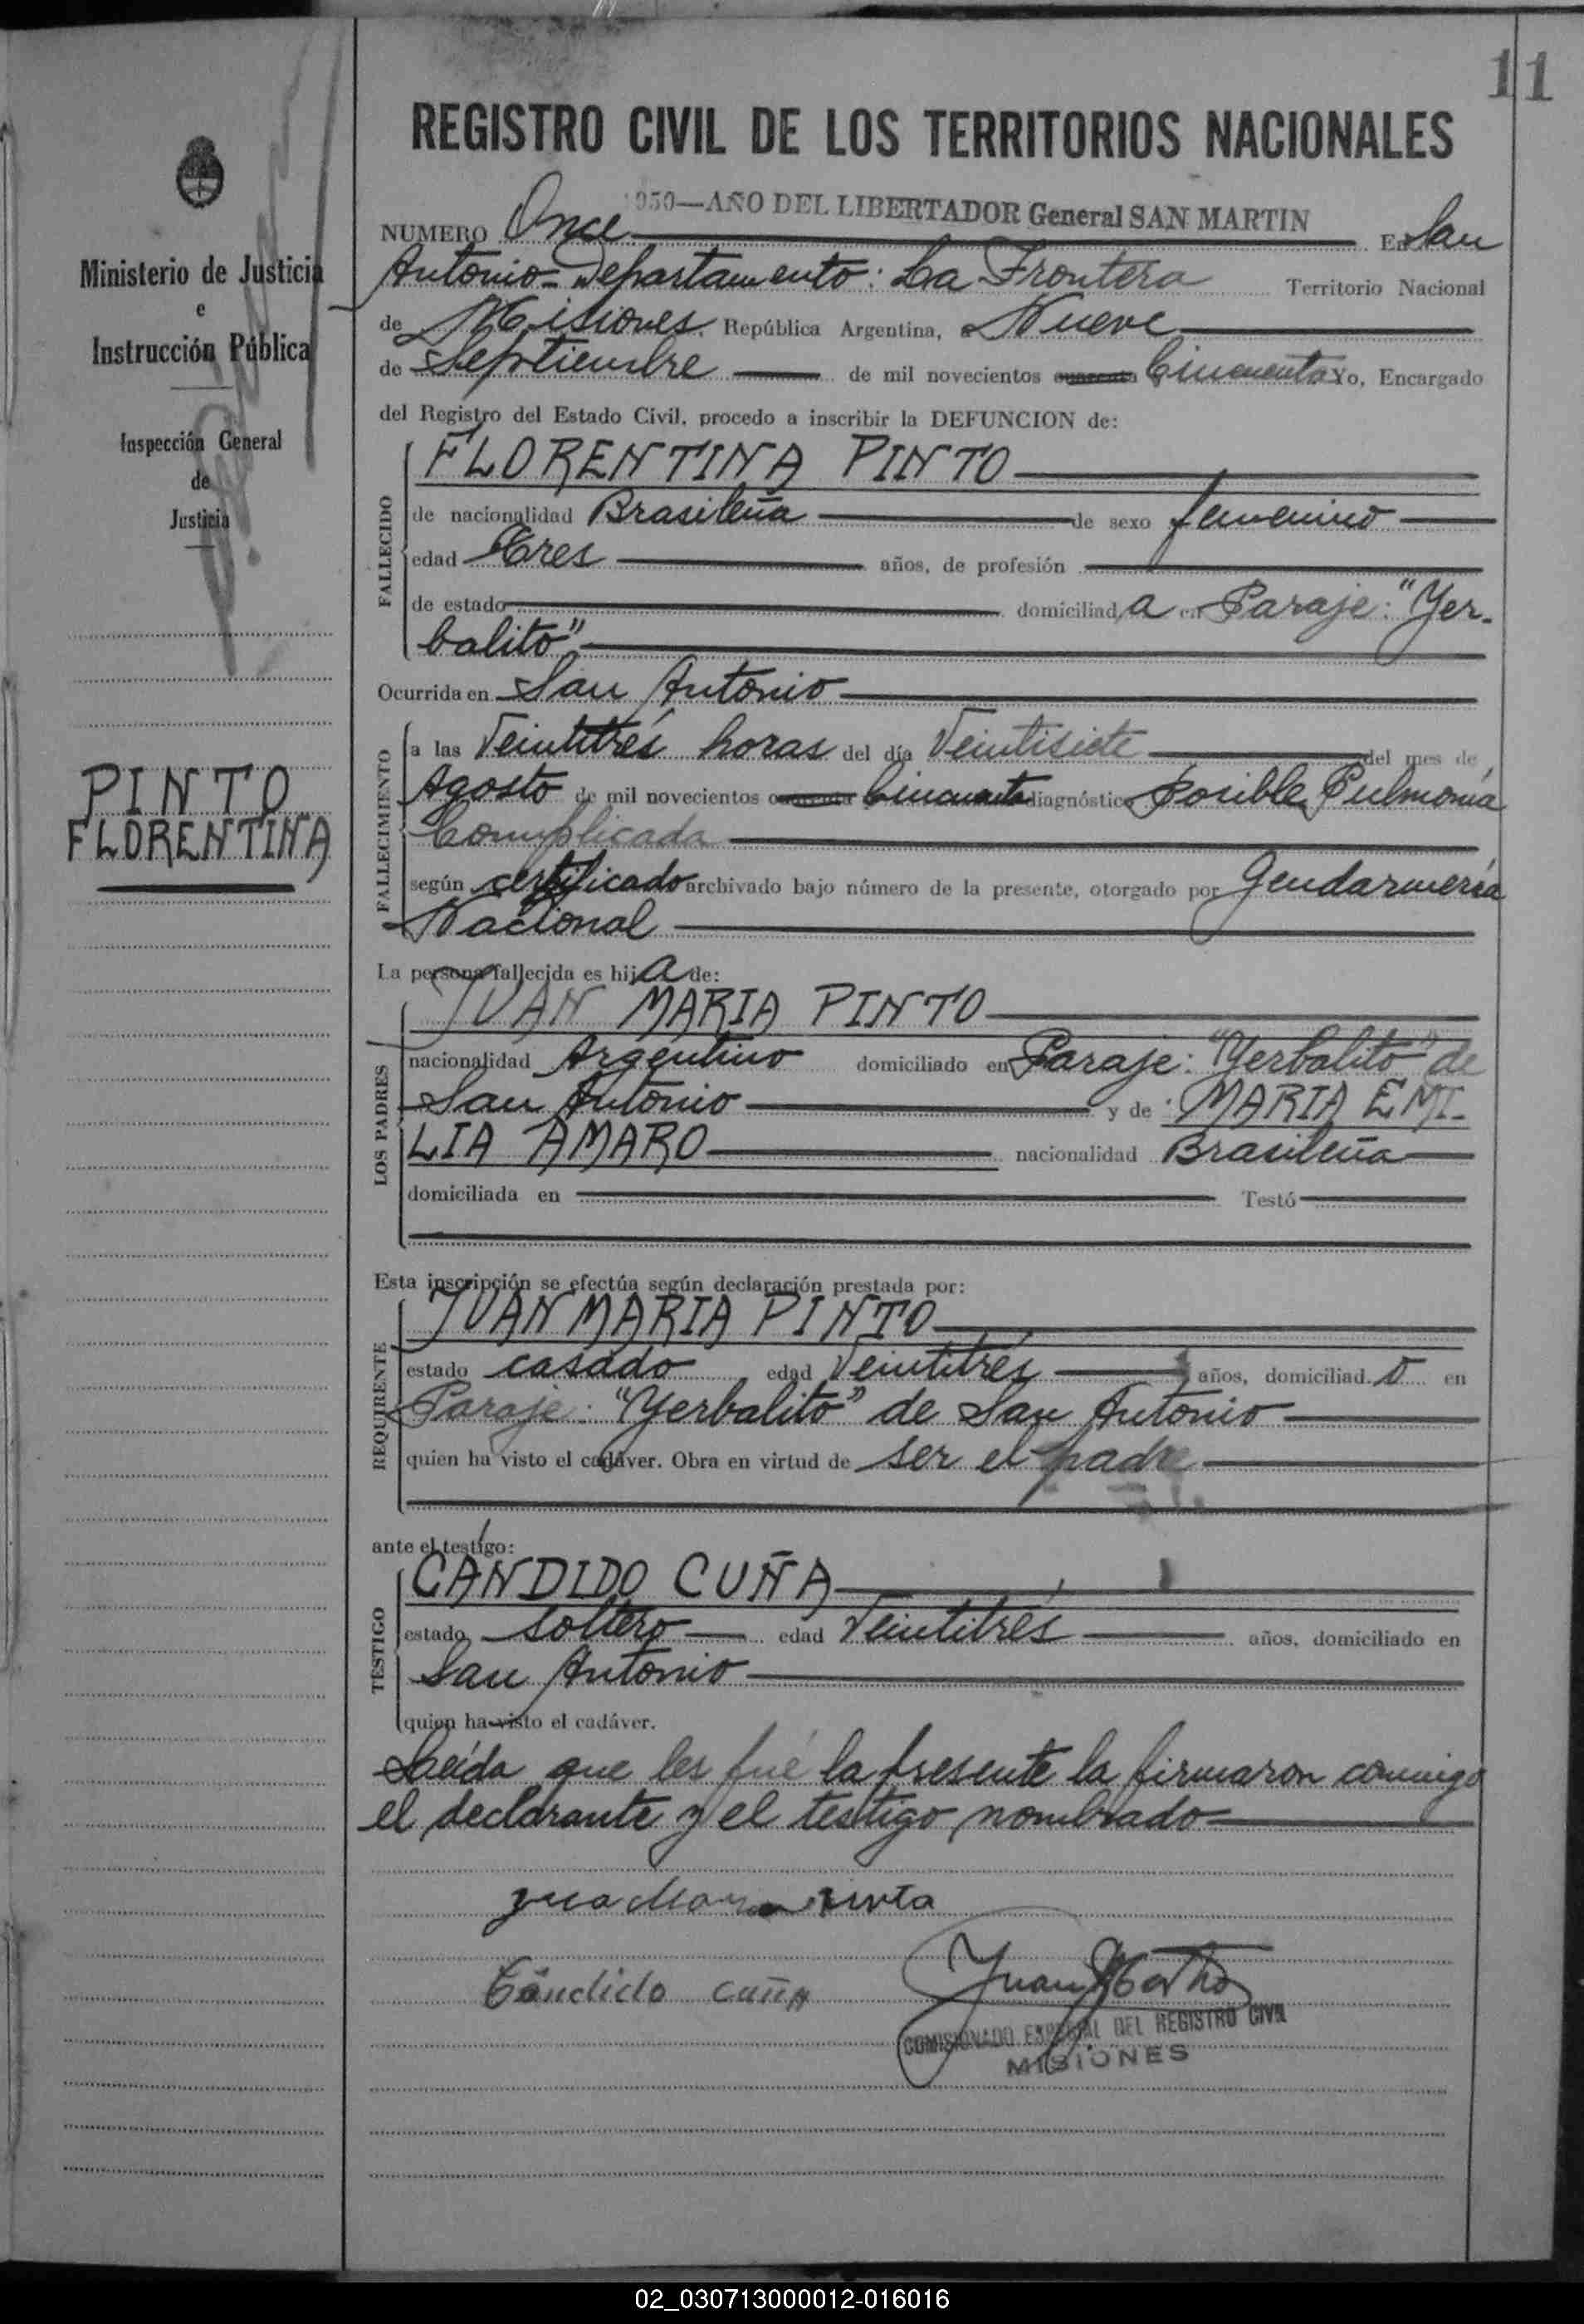 11
REGISTRO CIVIL DE LOS TERRITORIOS NACIONALES
1950—AÑO DEL LIBERTADOR General SAN MARTIN
Ministerio de Justicia
e
Instrucción Pública
Inspección General
de
Justicia
PINTO
FLORENTINA
NUMERO Once En San
Antonio - Departamento: La Frontera Territorio Nacional
de Misiones, República Argentina, a Nueve
de Septiembre de mil novecientos cuarenta Cincuenta Yo, Encargado
del Registro del Estado Civil, procedo a inscribir la DEFUNCION de:
FALLECIDO
FLORENTINA PINTO
de nacionalidad Brasileña de sexo femenino
edad Tres años, de profesión
de estado domiciliad a en Paraje: "Yer-
balito"
Ocurrida en San Antonio
FALLECIMIENTO
a las Veintitrés horas del día Veintisiete del mes de
Agosto de mil novecientos cuarenta Cincuenta diagnóstico Posible Pulmonía
Complicada
según certificado archivado bajo número de la presente, otorgado por Gendarmería
Nacional
La persona fallecida es hij a de:
LOS PADRES
JUAN MARIA PINTO
nacionalidad Argentino domiciliado en Paraje: "Yerbalito" de
San Antonio y de MARIA EMI-
LIA AMARO nacionalidad Brasileña
domiciliada en Testó
Esta inscripción se efectúa según declaración prestada por:
REQUIRENTE
JUAN MARIA PINTO
estado casado edad Veintitrés años, domiciliad o en
Paraje: "Yerbalito" de San Antonio
quien ha visto el cadáver. Obra en virtud de ser el padre
ante el testigo:
TESTIGO
CANDIDO CUÑA
estado soltero edad Veintitrés años, domiciliado en
San Antonio
quien ha visto el cadáver.
Leída que les fué la presente la firmaron conmigo
el declarante y el testigo nombrado
Cándido cuña
Juan
COMISIONADO ESPECIAL DEL REGISTRO CIVIL
MISIONES
02_030713000012-016016